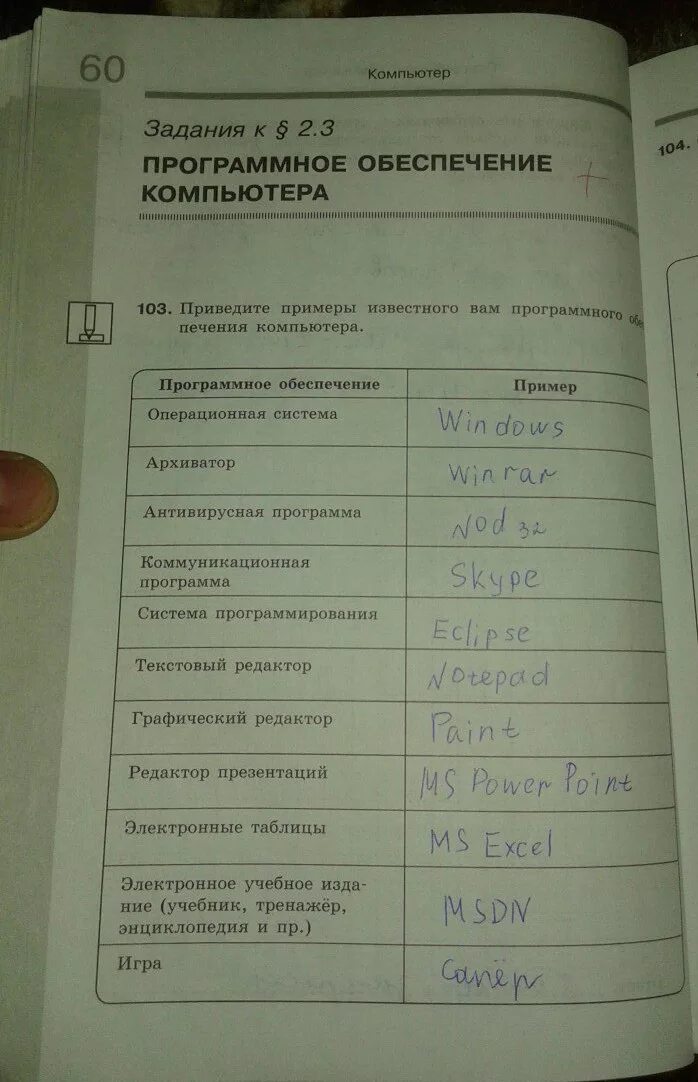 60
Компьютер
Задания к § 2.3
ПРОГРАММНОЕ ОБЕСПЕЧЕНИЕ
КОМПЬЮТЕРА
+
104.
103. Приведите примеры известного вам программного обе
печения компьютера.
Программное обеспечение Пример
Операционная система Windows
Архиватор Winrar
Антивирусная программа Nod 32
Коммуникационная
программа Skype
Система программирования Eclipse
Текстовый редактор Notepad
Графический редактор Paint
Редактор презентаций MS Power Point
Электронные таблицы MS Excel
Электронное учебное изда-
ние (учебник, тренажёр, MSDN
энциклопедия и пр.)
Игра Сапёр